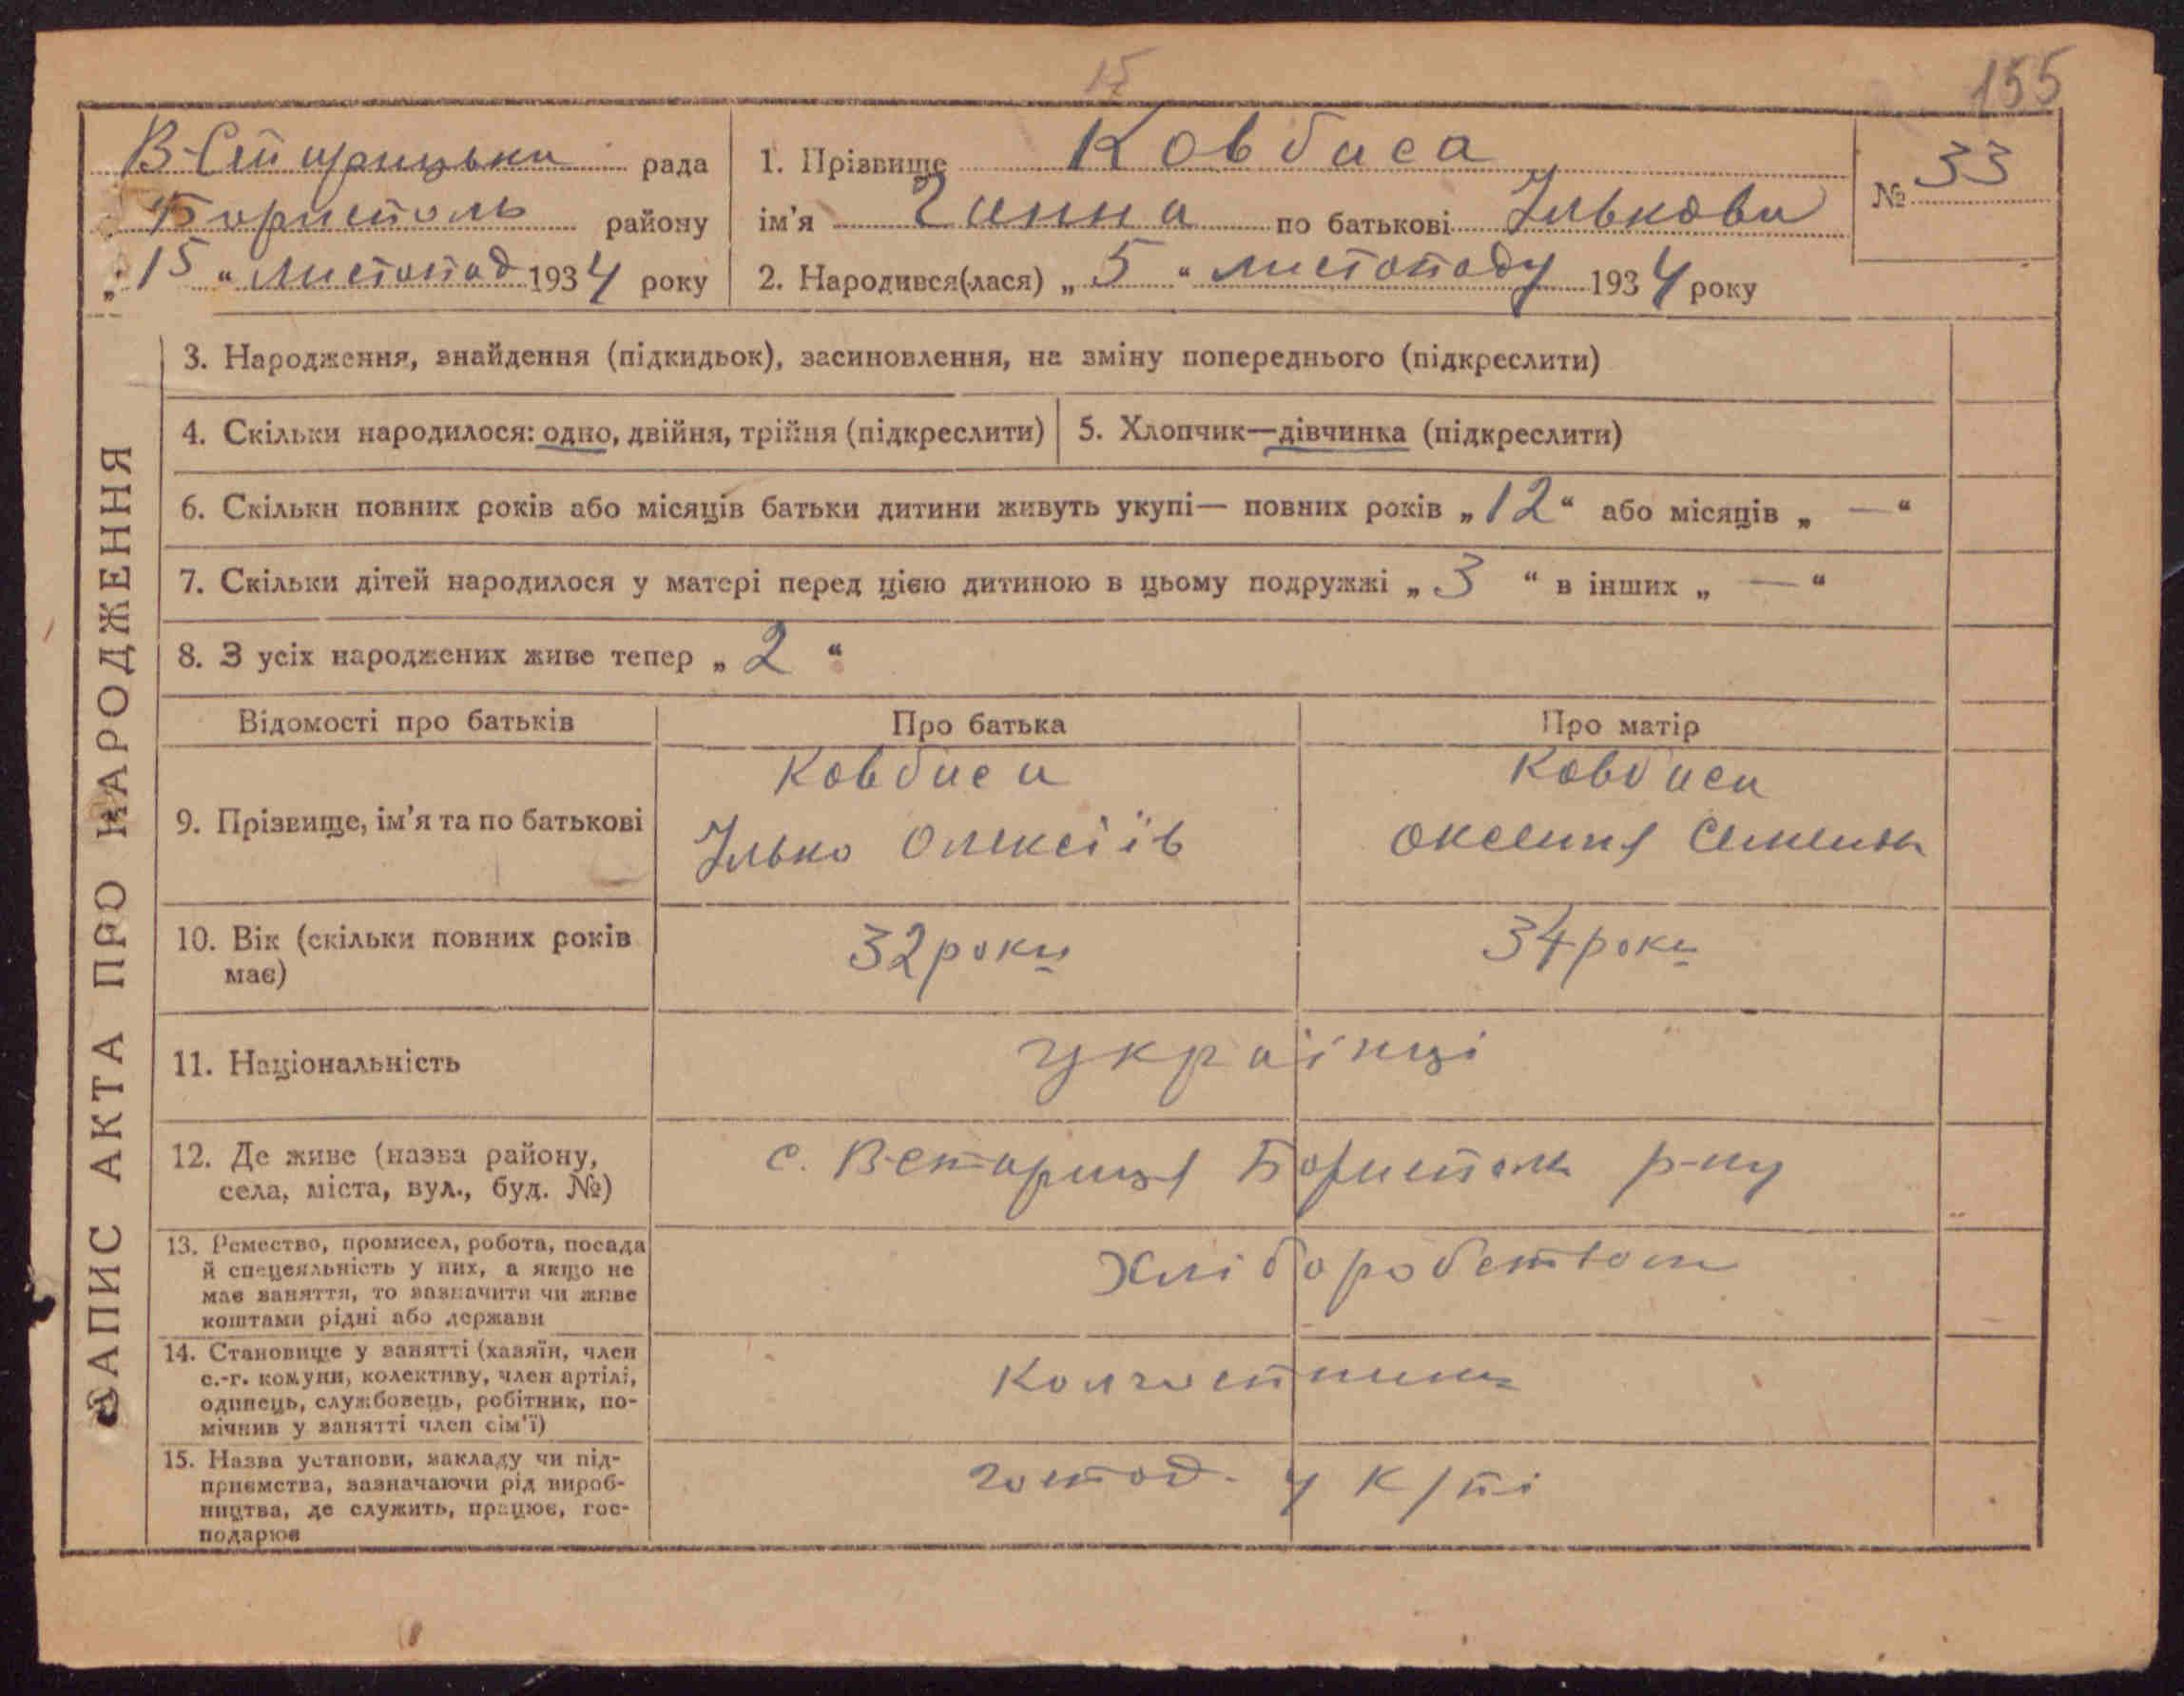 15
155
В-Старицька рада
Бориспіль району
„15“ листопад 1934 року
1. Прізвище Ковбаса
ім'я Ганна по батькові Ількова
2. Народився(лася) „5“ листопаду 1934 року
№ 33
ЗАПИС АКТА ПРО НАРОДЖЕННЯ
3. Народження, знайдення (підкидьок), засиновлення, на зміну попереднього (підкреслити)
4. Скільки народилося: одно, двійня, трійня (підкреслити)
5. Хлопчик—дівчинка (підкреслити)
6. Скільки повних років або місяців батьки дитини живуть укупі— повних років „12“ або місяців „ — “
7. Скільки дітей народилося у матері перед цією дитиною в цьому подружжі „3“ в інших „ — “
8. З усіх народжених живе тепер „2“
Відомості про батьків
Про батька
Про матір
9. Прізвище, ім'я та по батькові
Ковбаса
Ілько Олексіїв
Ковбаса
Оксенія Семенів
10. Вік (скільки повних років
має)
32 роки
34 роки
11. Національність
українці
12. Де живе (назва району,
села, міста, вул., буд. №)
с. В-Стариця Бориспол р-ну
13. Ремество, промисел, робота, посада
й спецеяльність у них, а якщо не
має заняття, то зазначити чи живе
коштами рідні або держави
Хліборобством
14. Становище у занятті (хазяїн, член
с.-г. комуни, колективу, член артілі,
одинець, службовець, робітник, по-
мічнив у занятті член сім'ї)
Колгоспники
15. Назва установи, закладу чи під-
приємства, зазначаючи рід вироб-
ництва, де служить, працює, гос-
подарює
господ. у к/пі